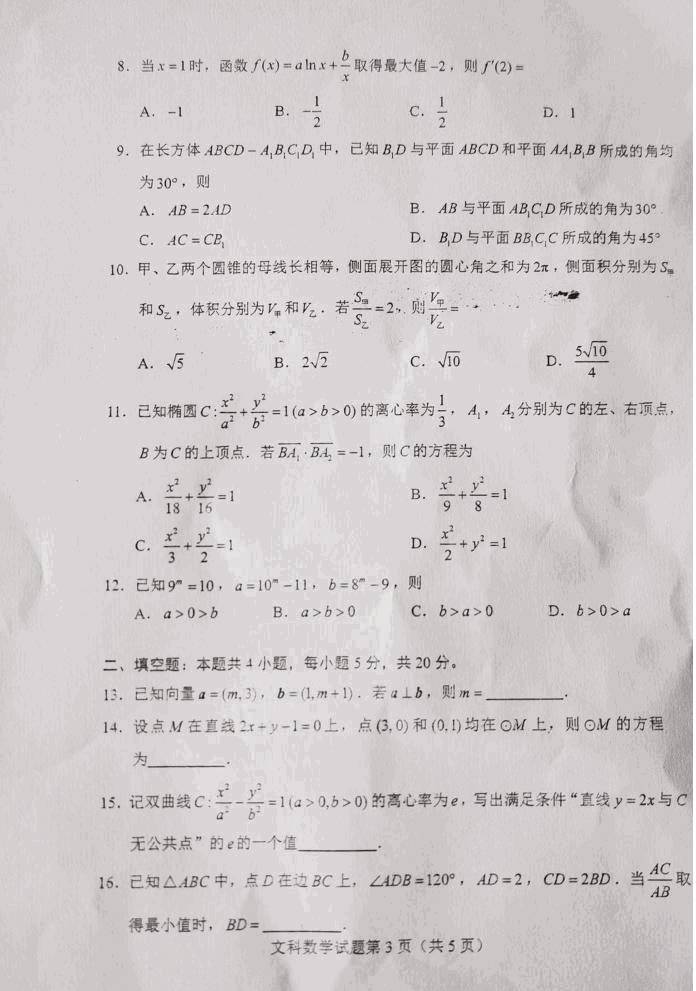 8. 当 x = 1 时，函数 f(x) = a ln x + b/x 取得最大值 -2，则 f′(2) =
A. -1 B. -1/2 C. 1/2 D. 1
9. 在长方体 ABCD - A₁B₁C₁D₁ 中，已知 B₁D 与平面 ABCD 和平面 AA₁B₁B 所成的角均
为 30°，则
A. AB = 2AD B. AB 与平面 AB₁C₁D 所成的角为 30°
C. AC = CB₁ D. B₁D 与平面 BB₁C₁C 所成的角为 45°
10. 甲、乙两个圆锥的母线长相等，侧面展开图的圆心角之和为 2π，侧面积分别为 S甲
和 S乙，体积分别为 V甲 和 V乙．若 S甲/S乙 = 2，则 V甲/V乙 =
A. √5 B. 2√2 C. √10 D. 5√10/4
11. 已知椭圆 C: x²/a² + y²/b² = 1 (a > b > 0) 的离心率为 1/3，A₁，A₂ 分别为 C 的左、右顶点，
B 为 C 的上顶点．若 BA₁ · BA₂ = -1，则 C 的方程为
A. x²/18 + y²/16 = 1 B. x²/9 + y²/8 = 1
C. x²/3 + y²/2 = 1 D. x²/2 + y² = 1
12. 已知 9ᵐ = 10，a = 10ᵐ - 11，b = 8ᵐ - 9，则
A. a > 0 > b B. a > b > 0 C. b > a > 0 D. b > 0 > a
二、填空题：本题共 4 小题，每小题 5 分，共 20 分。
13. 已知向量 a = (m, 3)，b = (1, m + 1)．若 a ⊥ b，则 m = ________．
14. 设点 M 在直线 2x + y - 1 = 0 上，点 (3, 0) 和 (0, 1) 均在 ⊙M 上，则 ⊙M 的方程
为________．
15. 记双曲线 C: x²/a² - y²/b² = 1 (a > 0, b > 0) 的离心率为 e，写出满足条件“直线 y = 2x 与 C
无公共点”的 e 的一个值________．
16. 已知 △ABC 中，点 D 在边 BC 上，∠ADB = 120°，AD = 2，CD = 2BD．当 AC/AB 取
得最小值时，BD = ________．
文科数学试题第 3 页（共 5 页）